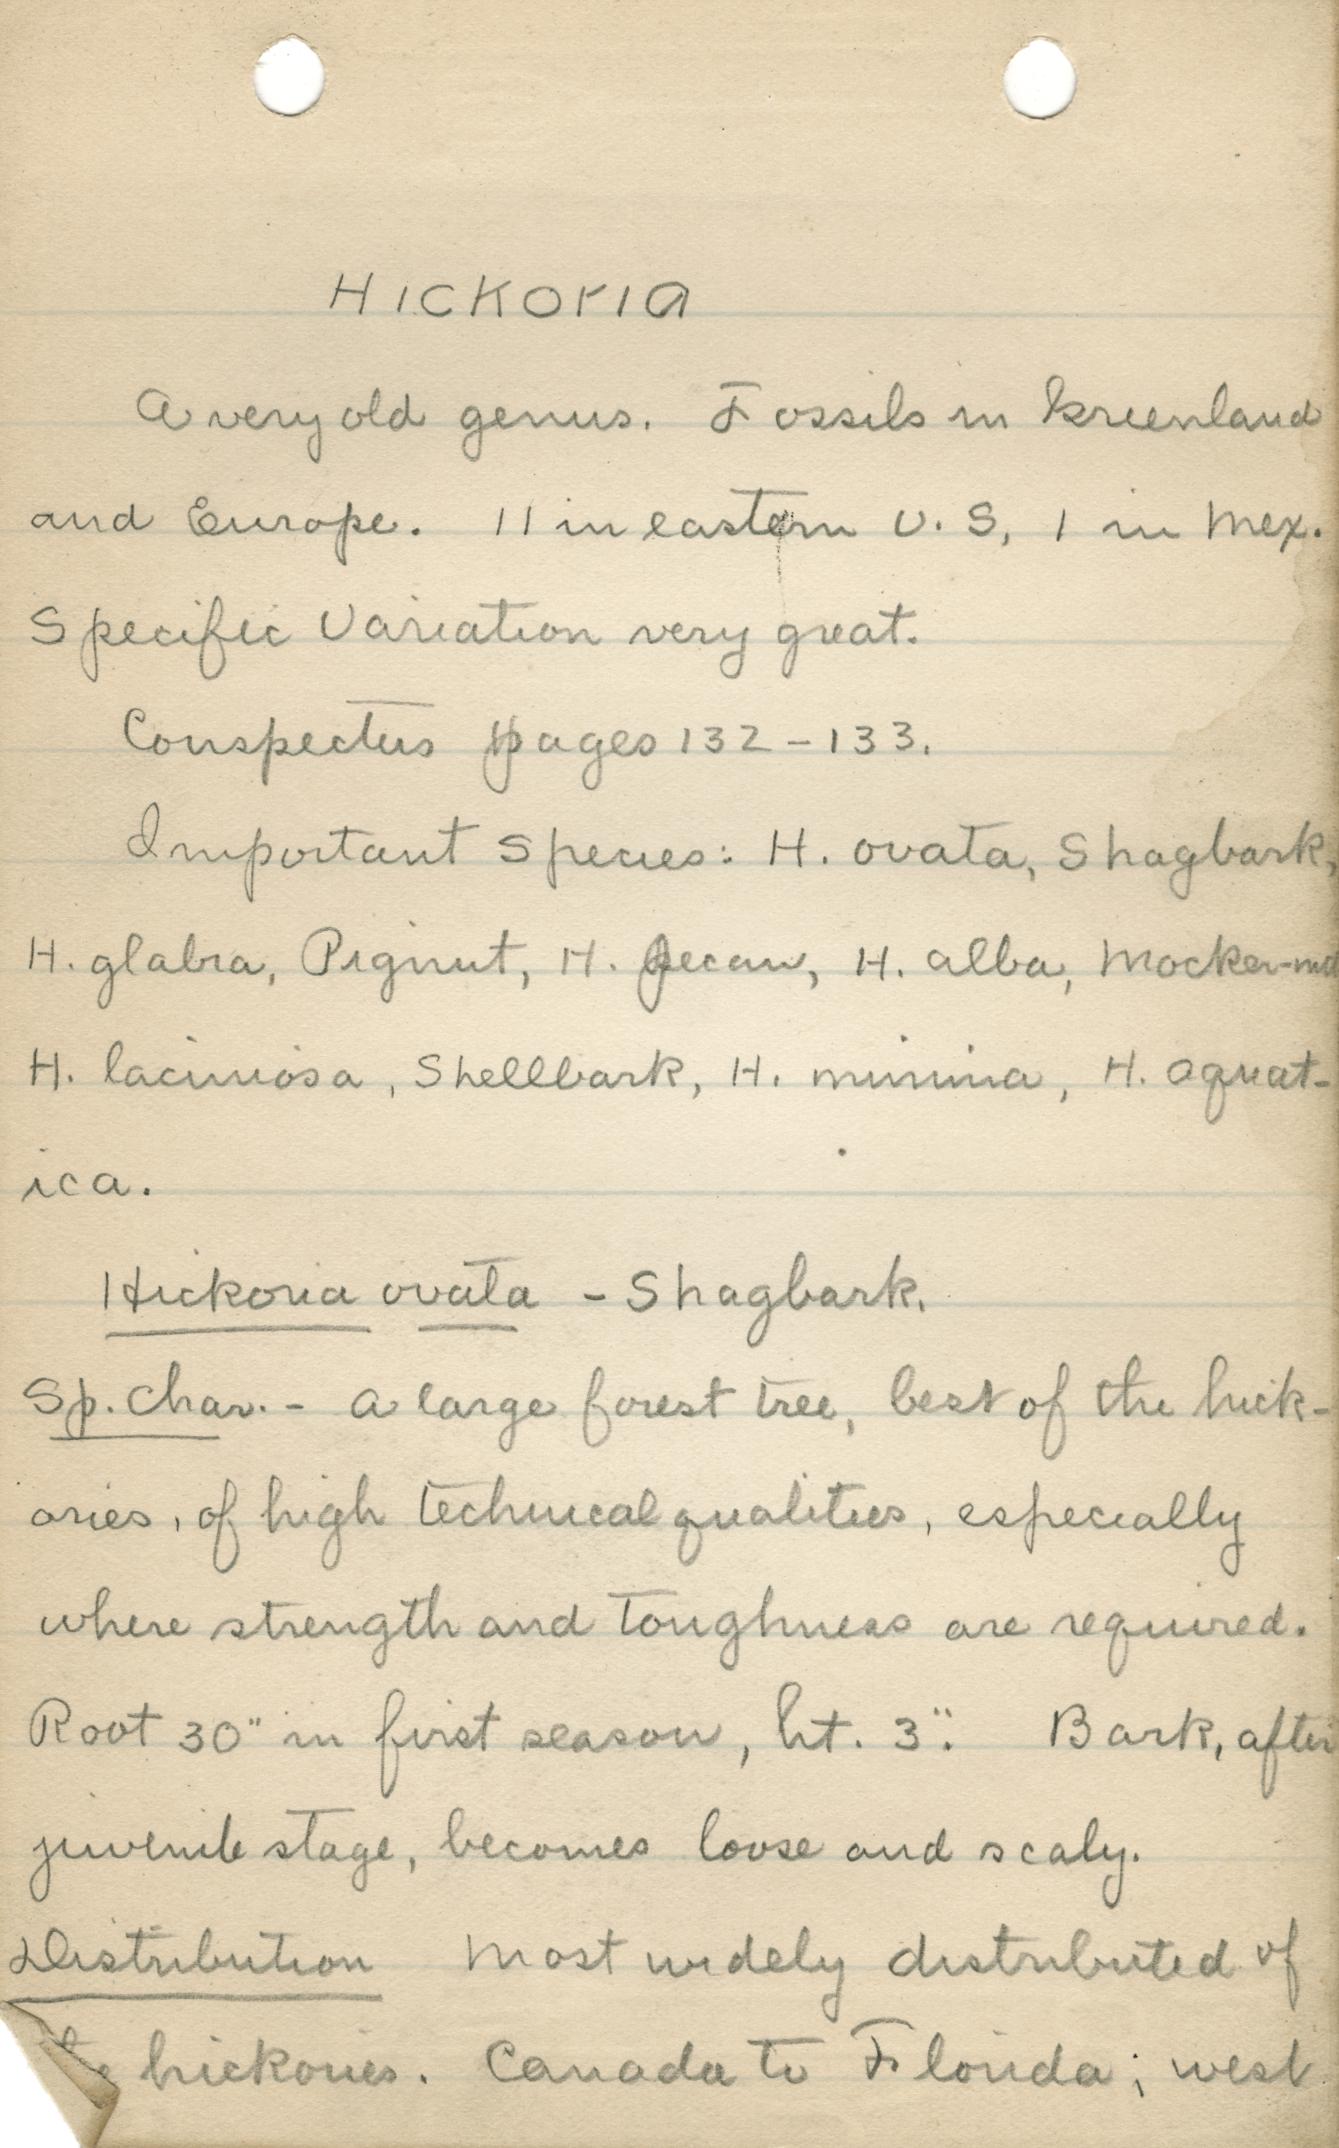 HICKORIA
A very old genus. Fossils in Greenland
and Europe. 11 in eastern U.S, 1 in Mex.
Specific Variation very great.
Conspectus pages 132-133.
Important Species: H. ovata, Shagbark,
H. glabra, Pignut, H. pecan, H. alba, Mocker-nut
H. laciniosa, Shellbark, H. minima, H. aquat-
ica.
Hickoria ovata - Shagbark.
Sp. Char. - A large forest tree, best of the hick-
ories, of high technical qualities, especially
where strength and toughness are required.
Root 30" in first season, ht. 3". Bark, after
juvenile stage, becomes loose and scaly.
Distribution Most widely distributed of
the hickories. Canada to Florida; west